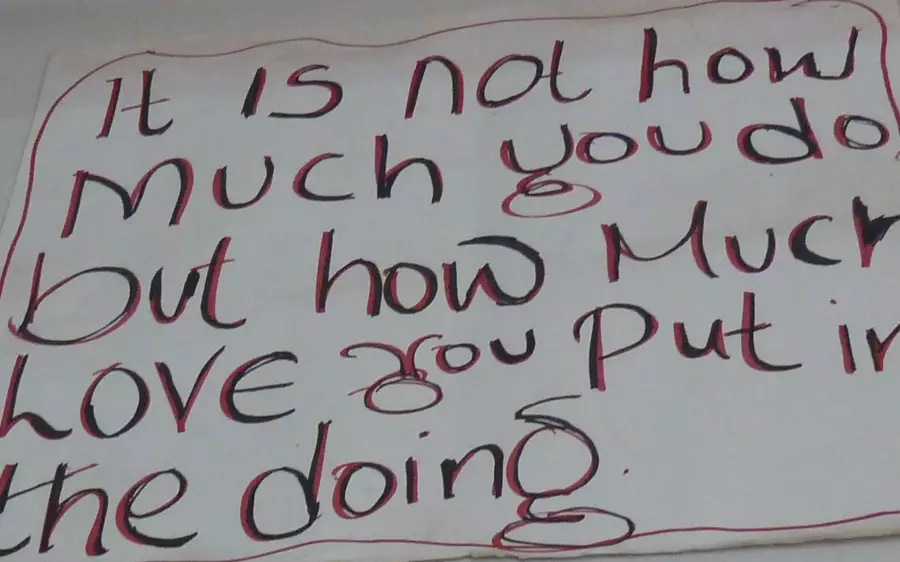 It is not how
Much you do
but how Much
Love you Put in
the doing.